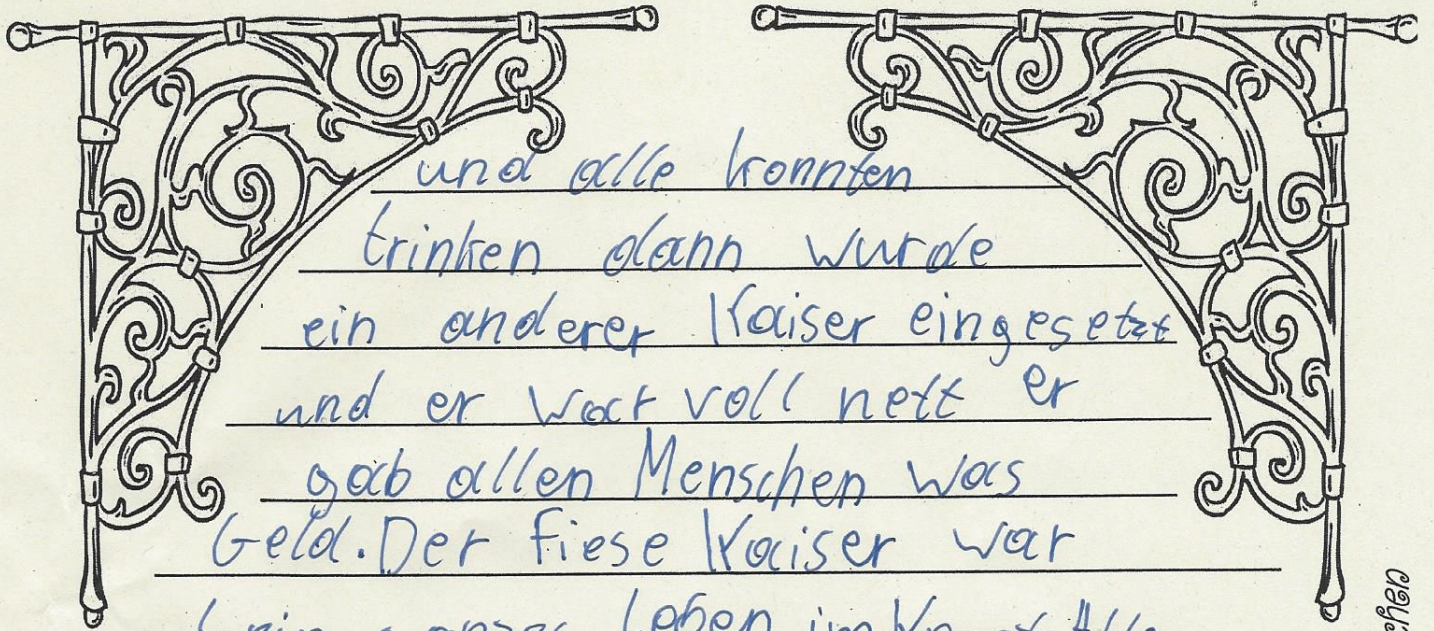 und alle konnten
trinken dann wurde
ein anderer Kaiser eingesetzt
und er war voll nett er
gab allen Menschen was
Geld. Der fiese Kaiser war
Leben im